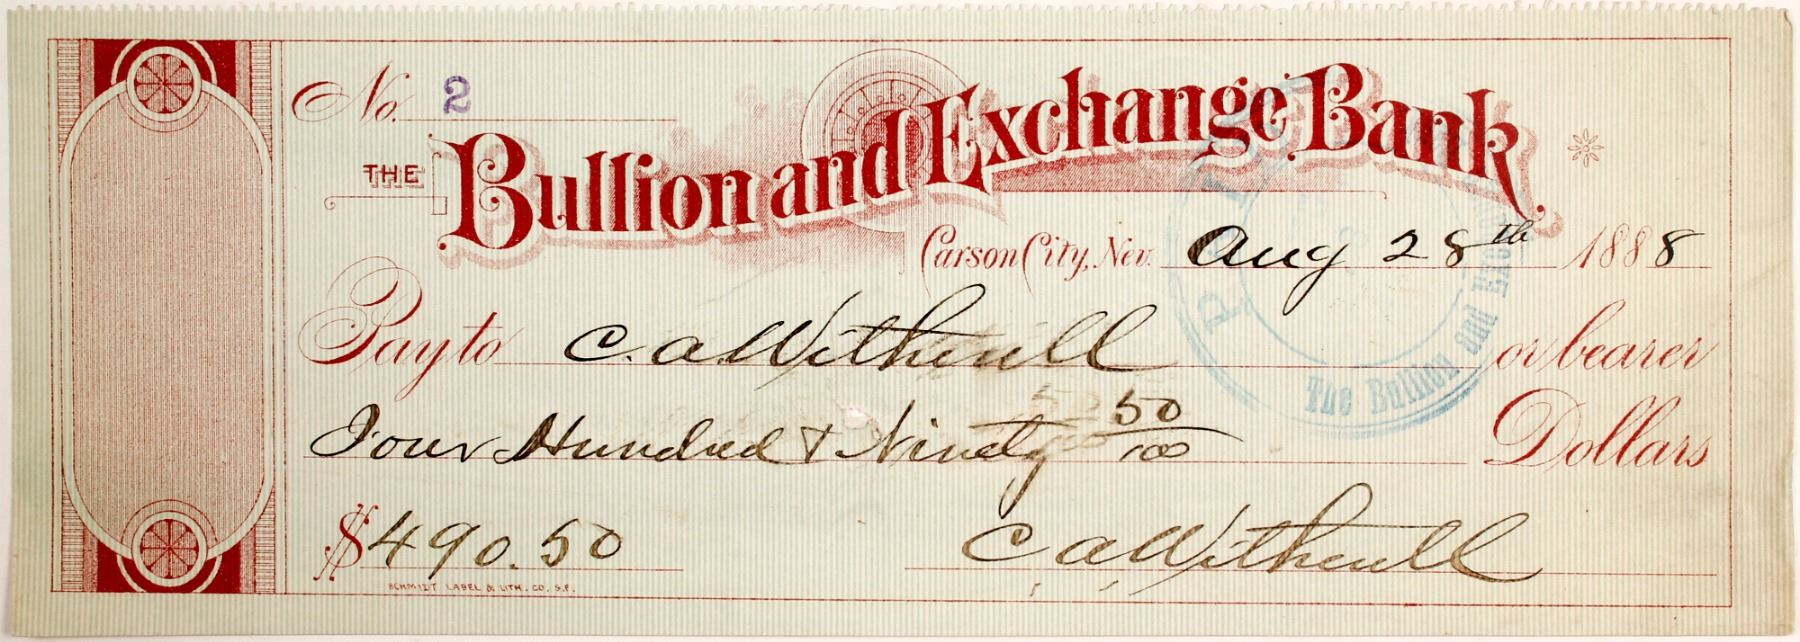 No. 2
THE Bullion and Exchange Bank
Carson City, Nev. Aug 28th 1888
Pay to C. A. Witherell or bearer
Four Hundred & Ninety 50/100 Dollars
$490.50 C A Witherell
SCHMIDT LABEL & LITH. CO. S.F.
The Bullion and